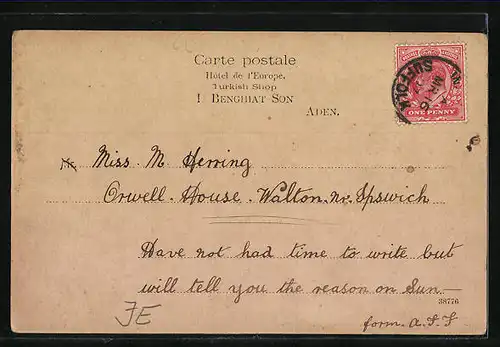 Carte postale
Hôtel de l'Europe.
Turkish Shop
I. BENGHIAT SON
ADEN.
SUFFOLK
ONE PENNY
Miss M Herring
Orwell-House. Walton. nr. Ipswich
Have not had time to write but
will tell you the reason on Sun-
38776
JE
form. a.S.S